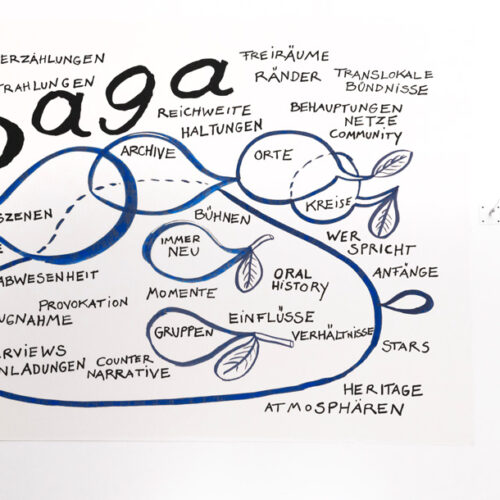 ERZÄHLUNGEN
FREIRÄUME
TRAHLUNGEN
RÄNDER
TRANSLOKALE
BÜNDNISSE
aga
REICHWEITE
HALTUNGEN
BEHAUPTUNGEN
NETZE
COMMUNITY
ARCHIVE
ORTE
SZENEN
BÜHNEN
KREISE
IMMER
NEU
WER
SPRICHT
ABWESENHEIT
ORAL
HISTORY
ANFÄNGE
MOMENTE
PROVOKATION
UGNAHME
GRUPPEN
EINFLÜSSE
VERHÄLTNISSE
STARS
RVIEWS
NLADUNGEN
COUNTER
NARRATIVE
HERITAGE
ATMOSPHÄREN